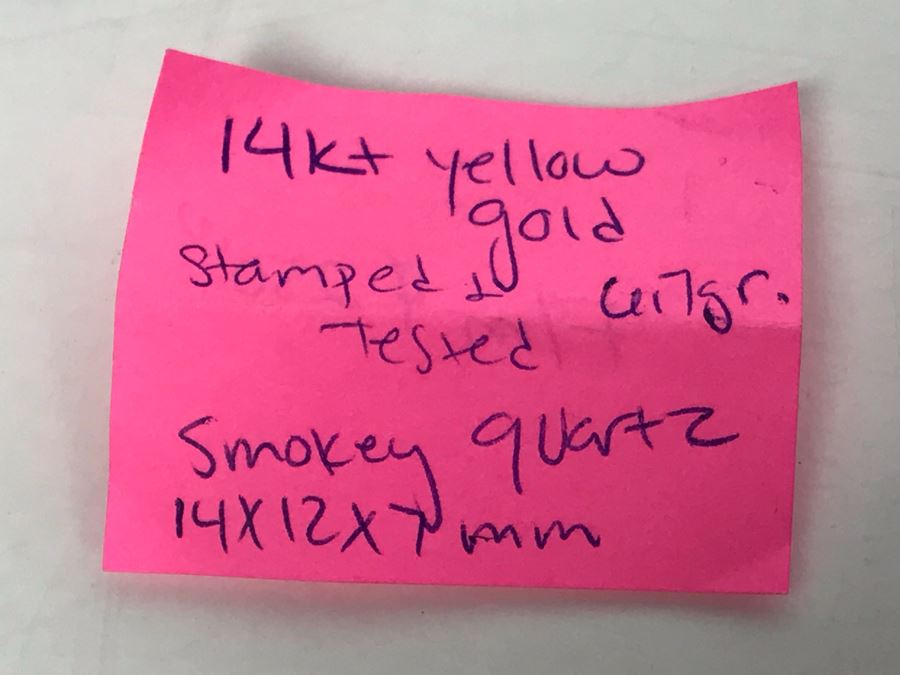 14kt yellow
gold
Stamped &
6.7gr.
Tested
Smokey quartz
14X12X7 mm